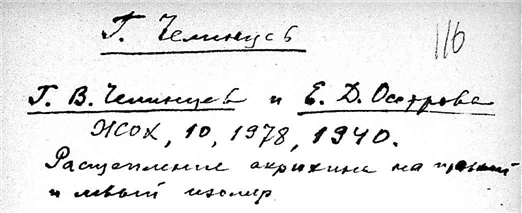 Г. Челинцев
116
Г. В. Челинцев и Е. Д. Осетрова
ЖОХ, 10, 1978, 1940.
Расщепление акрихина на правый
и левый изомер